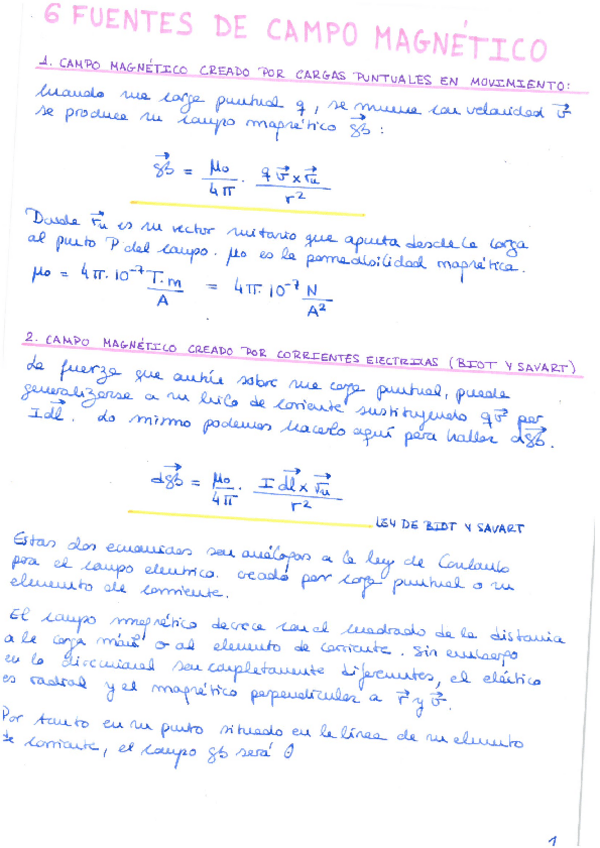 6 FUENTES DE CAMPO MAGNÉTICO
1. CAMPO MAGNÉTICO CREADO POR CARGAS PUNTUALES EN MOVIMIENTO:
Cuando una carga puntual q, se mueve con velocidad v⃗
se produce un campo magnético B⃗ :
B⃗ = μ₀/4π · q v⃗ × r⃗u / r²
Donde r⃗u es un vector unitario que apunta desde la carga
al punto P del campo. μ₀ es la permeabilidad magnética.
μ₀ = 4π·10⁻⁷ T·m/A = 4π·10⁻⁷ N/A²
2. CAMPO MAGNÉTICO CREADO POR CORRIENTES ELECTRICAS (BIOT Y SAVART)
La fuerza que actúa sobre una carga puntual, puede
generalizarse a un hilo de corriente sustituyendo q v⃗ por
I dl⃗. Lo mismo podemos hacerlo aquí para hallar dB⃗.
dB⃗ = μ₀/4π · I dl⃗ × r⃗u / r²
LEY DE BIOT Y SAVART
Estas dos ecuaciones son análogas a la ley de Coulomb
para el campo electrico. creado por carga puntual o un
elemento de corriente.
El campo magnético decrece con el cuadrado de la distancia
a la carga móvil o al elemento de corriente. Sin embargo
en lo direccional son completamente diferentes, el eléctrico
es radial y el magnético perpendicular a r⃗ y v⃗.
Por tanto en un punto situado en la línea de un elemento
de corriente, el campo B será 0
1